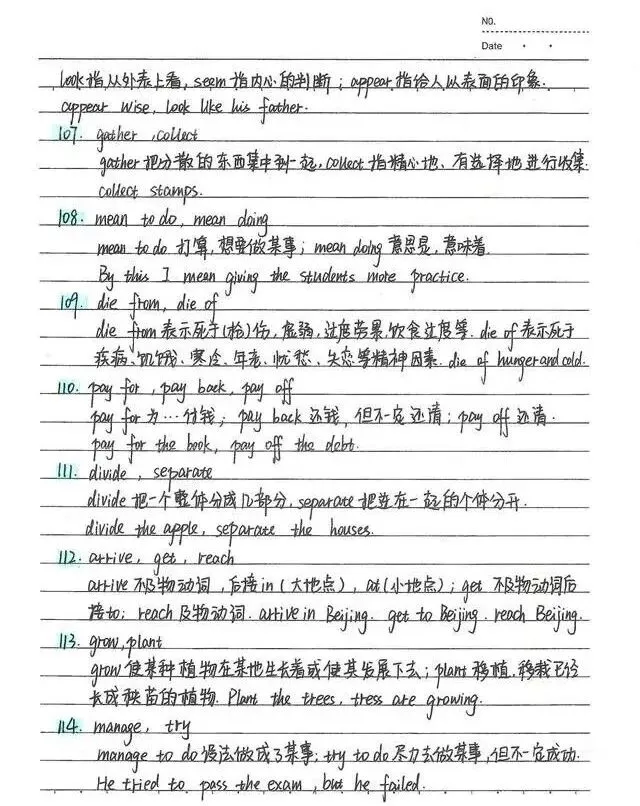 NO.
Date
look指从外表上看, seem指内心的判断; appear指给人以表面的印象.
appear wise, look like his father.
107. gather, collect
gather把分散的东西集中到一起, collect指精心地、有选择地进行收集
collect stamps.
108. mean to do, mean doing
mean to do 打算, 想要做某事; mean doing 意思是, 意味着
By this I mean giving the students more practice.
109. die from, die of
die from表示死于(枪)伤, 虚弱, 过度劳累, 饮食过度等. die of表示死于
疾病、饥饿、寒冷、年老、忧愁、失恋等精神因素. die of hunger and cold.
110. pay for, pay back, pay off
pay for 为…付钱; pay back 还钱, 但不一定还清; pay off 还清.
pay for the book, pay off the debt.
111. divide, separate
divide把一个整体分成几部分, separate把连在一起的个体分开.
divide the apple, separate the houses.
112. arrive, get, reach
arrive不及物动词, 后接in(大地点), at(小地点); get 不及物动词后
接to; reach及物动词. arrive in Beijing. get to Beijing. reach Beijing.
113. grow, plant
grow使某种植物在某地生长着或使其发展下去; plant移植, 移栽已经
长成秧苗的植物. Plant the trees, tress are growing.
114. manage, try
manage to do设法做成了某事; try to do尽力去做某事, 但不一定成功.
He tried to pass the exam, but he failed.